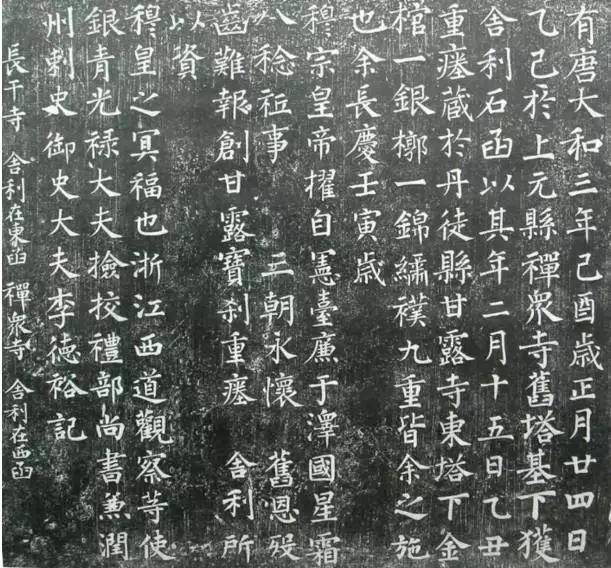 有唐大和三年己酉歲正月廿四日
乙巳於上元縣禪衆寺舊塔基下獲
舍利石函以其年二月十五日乙丑
重瘞藏於丹徒縣甘露寺東塔下金
棺一銀槨一錦繡襆九重皆余之施
也余長慶壬寅歲
穆宗皇帝擢自憲臺廉于澤國星霜
八稔祗事 三朝永懷 舊恩歿
齒難報創甘露寶刹重瘞 舍利所
以資
穆皇之冥福也浙江西道觀察等使
銀青光祿大夫檢校禮部尚書兼潤
州刺史御史大夫李德裕記
長干寺 舍利在東函 禪衆寺 舍利在西函